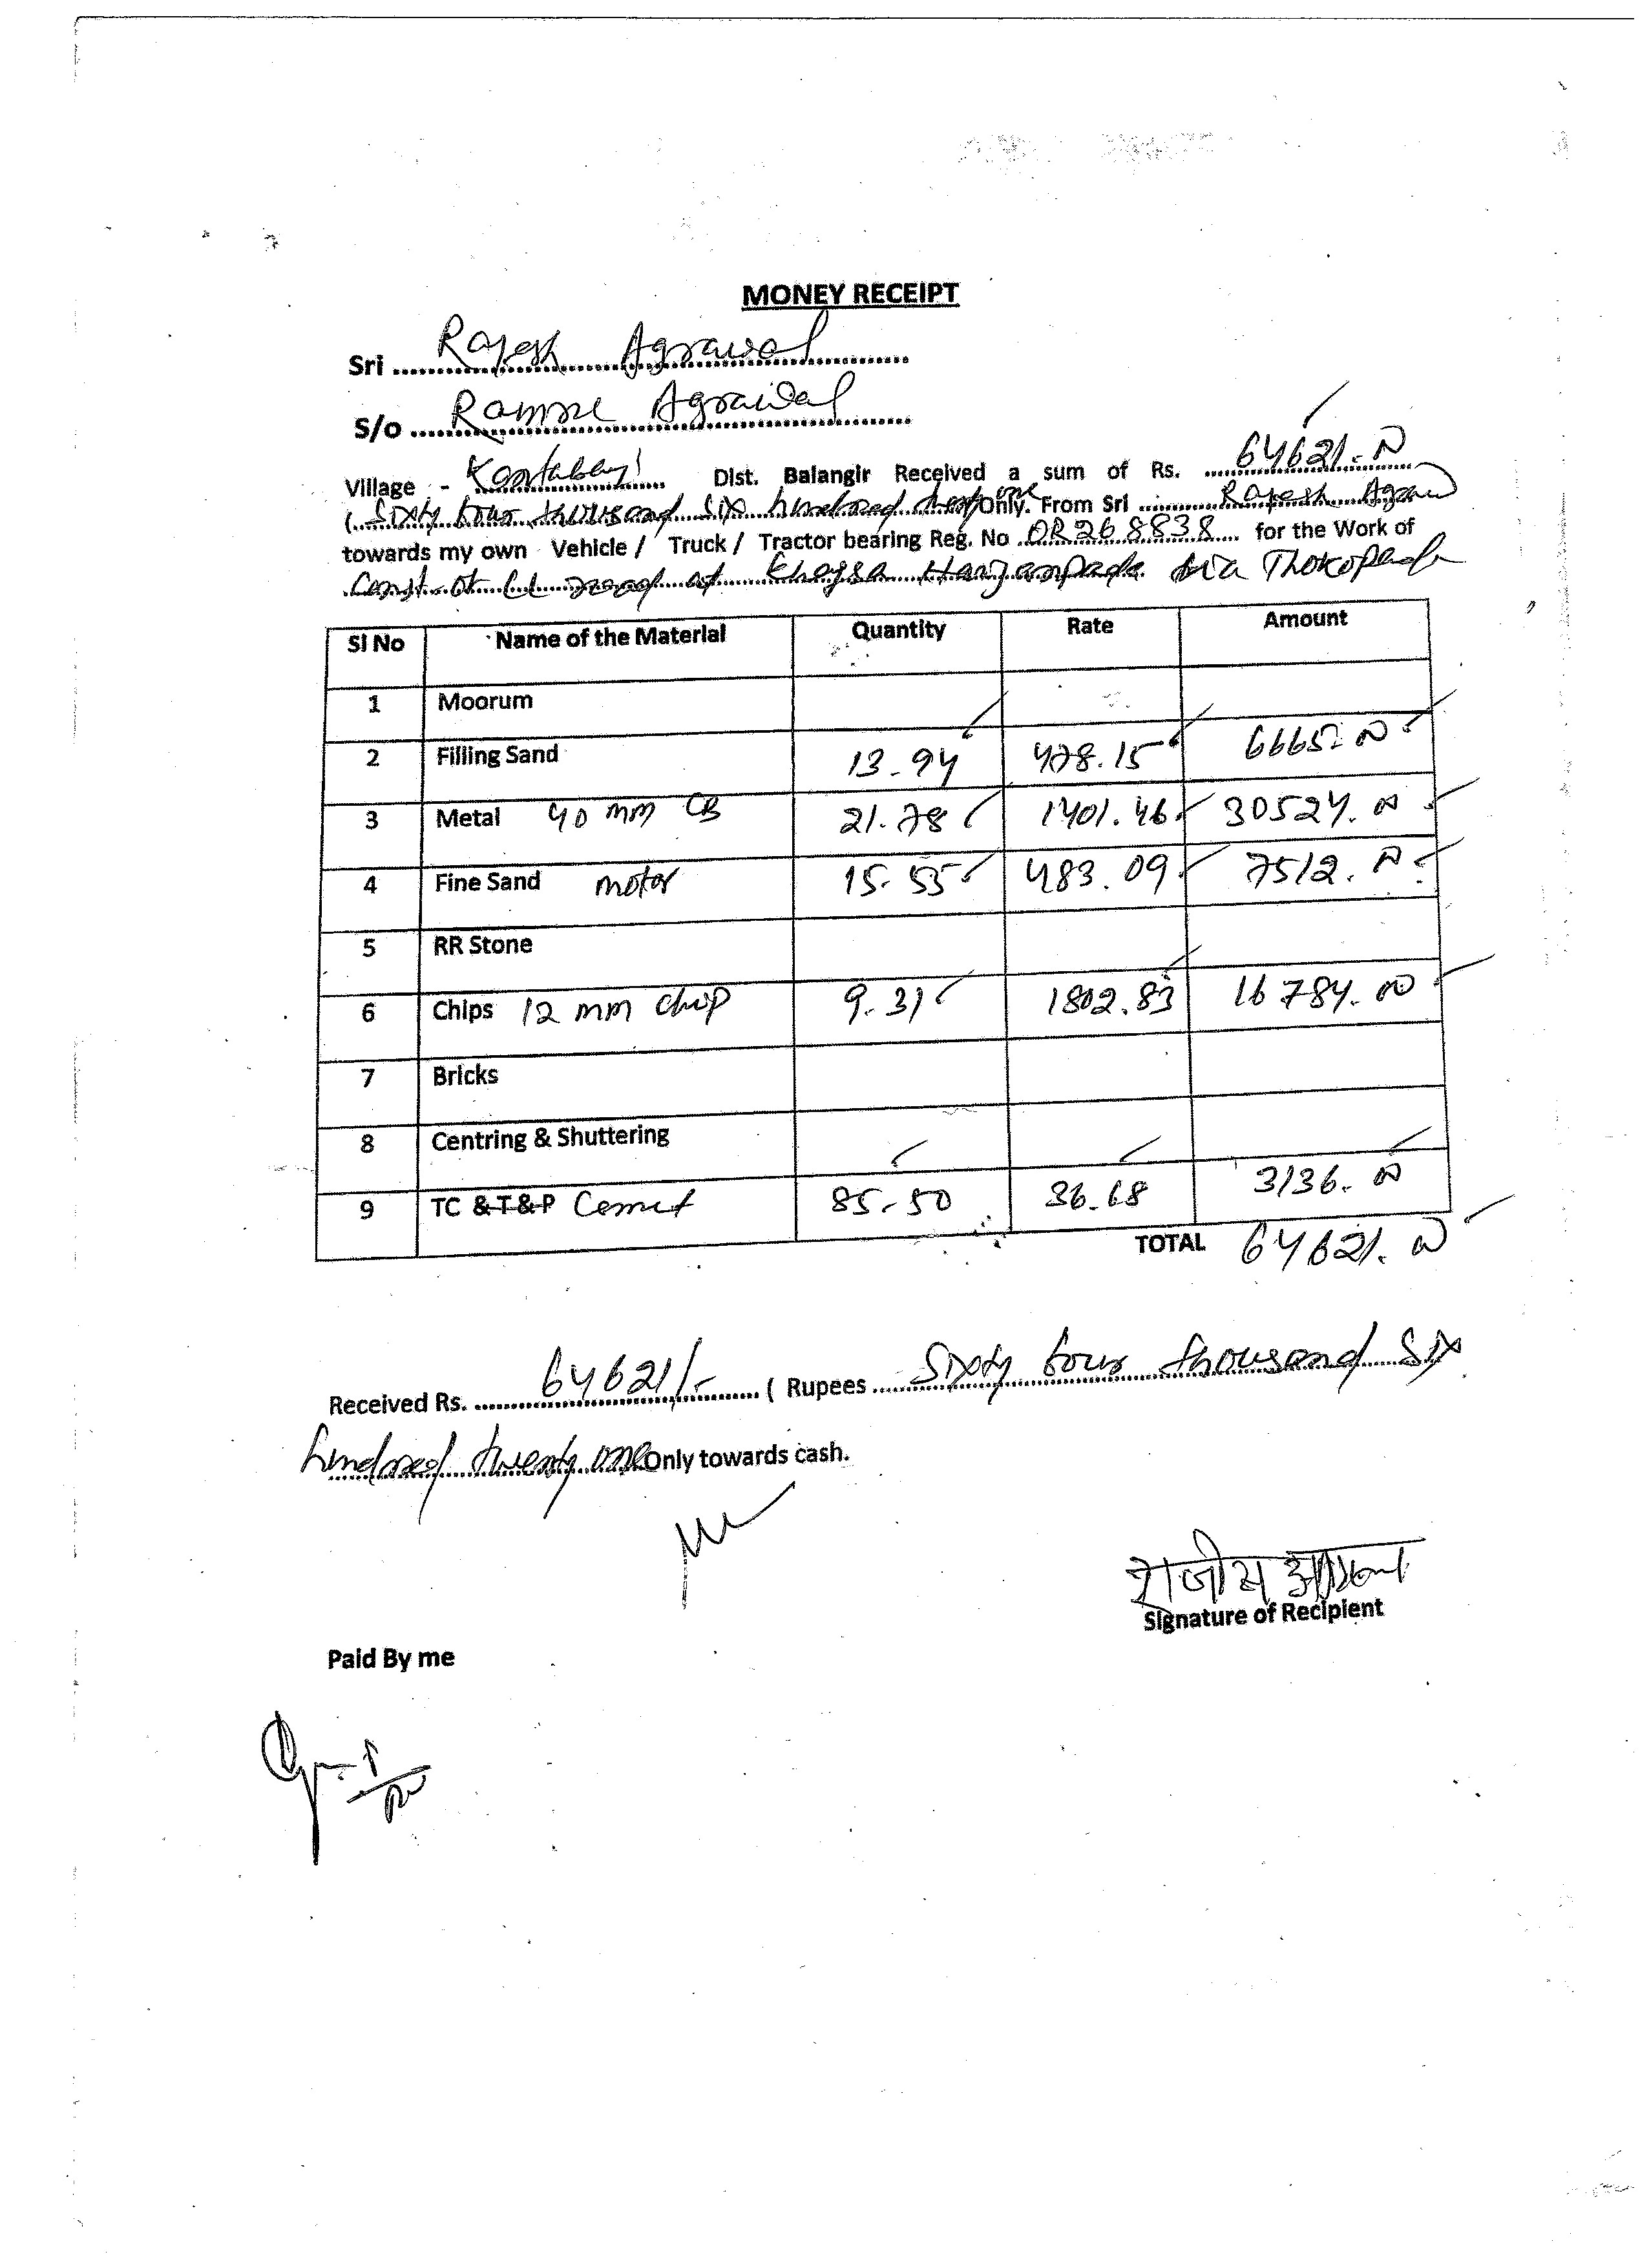 MONEY RECEIPT
Sri Rajesh Agrawal
S/o Agrawal
Village - Dist. Balangir Received a sum of Rs. 64621.00
( Sixty four thousand six hundred Only. From Sri Rajesh
towards my own Vehicle / Truck / Tractor bearing Reg. No OR268838 for the Work of
Const. of CC road at Harijanpada via Thokopada
Sl No Name of the Material Quantity Rate Amount
1 Moorum
2 Filling Sand 13.94 478.15 6665.00
3 Metal 40 mm CB 21.78 1401.46 30524.00
4 Fine Sand motor 15.55 483.09 7512.00
5 RR Stone
6 Chips 12 mm chip 9.31 1802.83 16784.00
7 Bricks
8 Centring & Shuttering
9 TC &T&P Cemet 85.50 36.68 3136.00
TOTAL 64621.00
Received Rs. 64621/- ( Rupees Sixty four thousand six
hundred twenty one Only towards cash.
Signature of Recipient
Paid By me